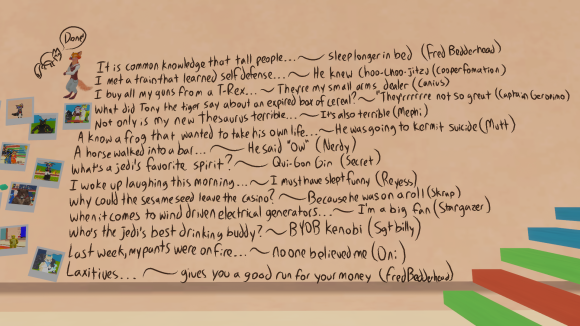 Done!
It is common knowledge that tall people...~ sleep longer in bed (Fred Bedderhead)
I met a train that learned self defense...~ He knew Choo-Choo-Jitzu (Cooperfomation)
I buy all my guns from a T-Rex...~ They're my small arms dealer (Canius)
What did Tony the tiger say about an expired box of cereal?~"They'rrrrrre not so great (Captain Geronimo)
Not only is my new Thesaurus terrible...~ It's also terrible (Mephi)
A know a frog that wanted to take his own life...~ He was going to Kermit Suicide (Mutt)
A horse walked into a bar...~ He said "Ow" (Nerdy)
What's a jedi's favorite spirit?~ Qui-Gon Gin (Secret)
I woke up laughing this morning...~ I must have slept funny (Reyess)
Why could the sesame seed leave the casino?~ Because he was on a roll (Skrap)
When it comes to wind driven electrical generators...~ I'm a big fan (Stargazer)
Who's the jedi's best drinking buddy?~ BYOB Kenobi (Sgt billy)
Last week, my pants were on fire...~ no one believed me (Oni)
Laxitives...~ gives you a good run for your money (Fred Bedderhead)